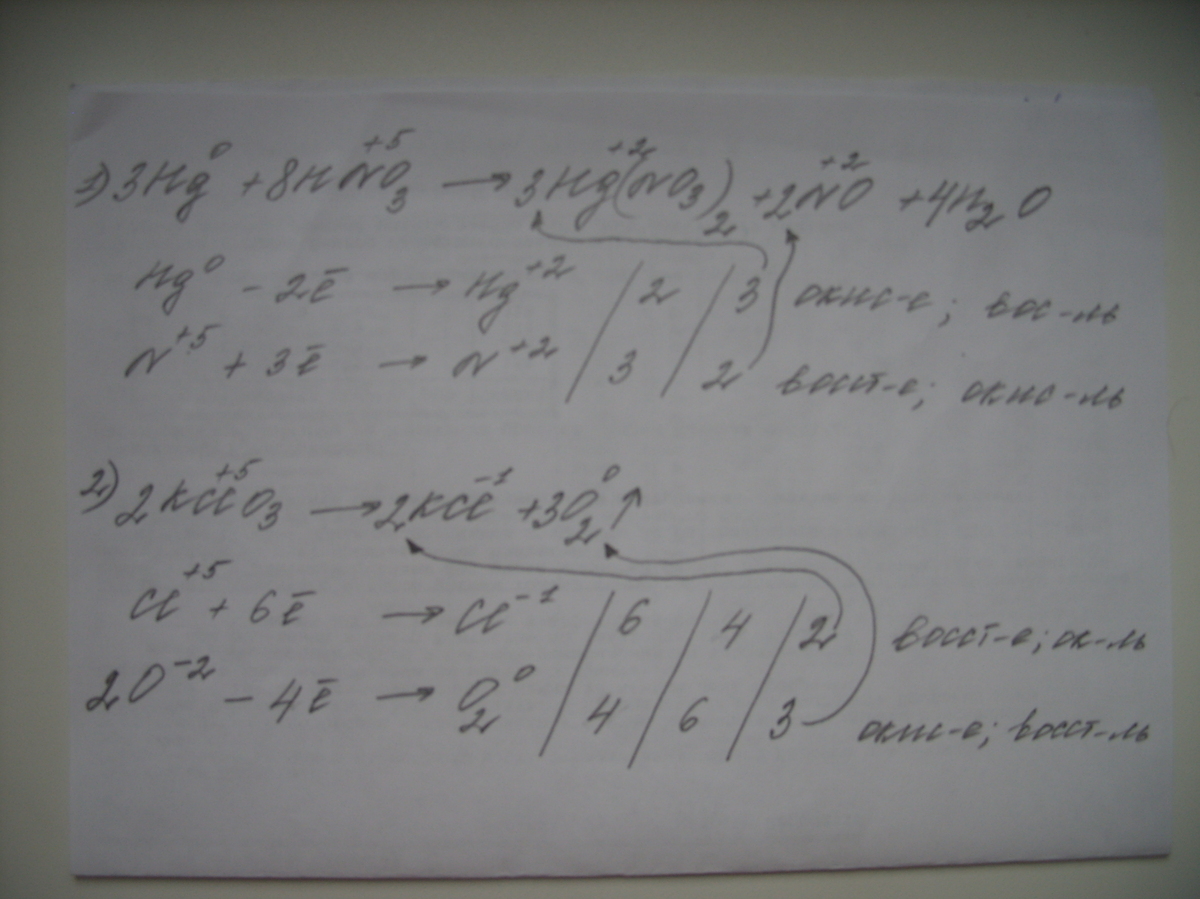 1) 3Hg⁰ + 8HN⁺⁵O₃ → 3Hg⁺²(NO₃)₂ + 2N⁺²O + 4H₂O
Hg⁰ - 2ē → Hg⁺² / 2 / 3 окис-е; вос-ль
N⁺⁵ + 3ē → N⁺² / 3 / 2 восст-е; окис-ль
2) 2KCl⁺⁵O₃ → 2KCl⁻¹ + 3O₂⁰↑
Cl⁺⁵ + 6ē → Cl⁻¹ / 6 / 4 / 2 восст-е; ок-ль
2O⁻² - 4ē → O₂⁰ / 4 / 6 / 3 окис-е; восст-ль